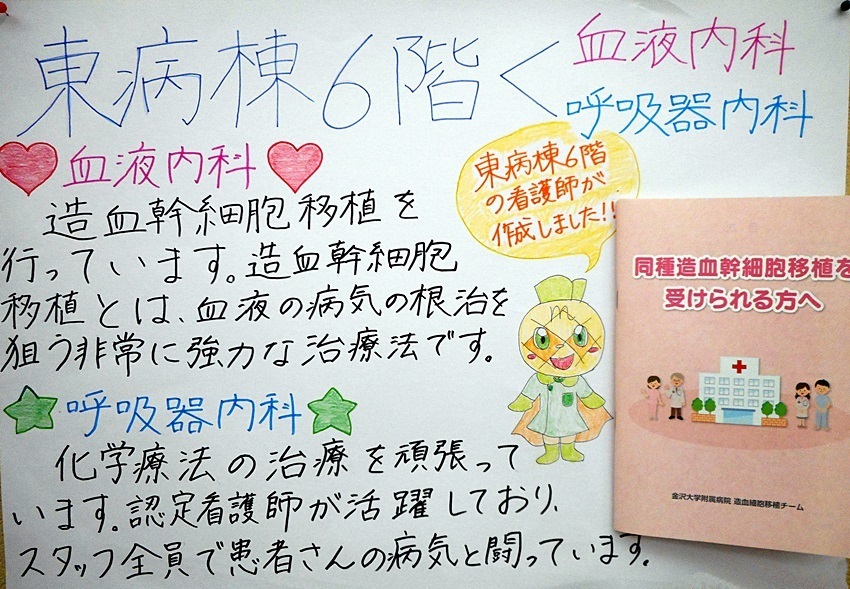 東病棟6階く
血液内科
呼吸器内科
血液内科
造血幹細胞移植を
行っています。造血幹細胞
移植とは、血液の病気の根治を
狙う非常に強力な治療法です。
東病棟6階
の看護師が
作成しました!!
同種造血幹細胞移植を
受けられる方へ
金沢大学附属病院 造血細胞移植チーム
呼吸器内科
化学療法の治療を頑張って
います。認定看護師が活躍しており、
スタッフ全員で患者さんの病気と闘っています。